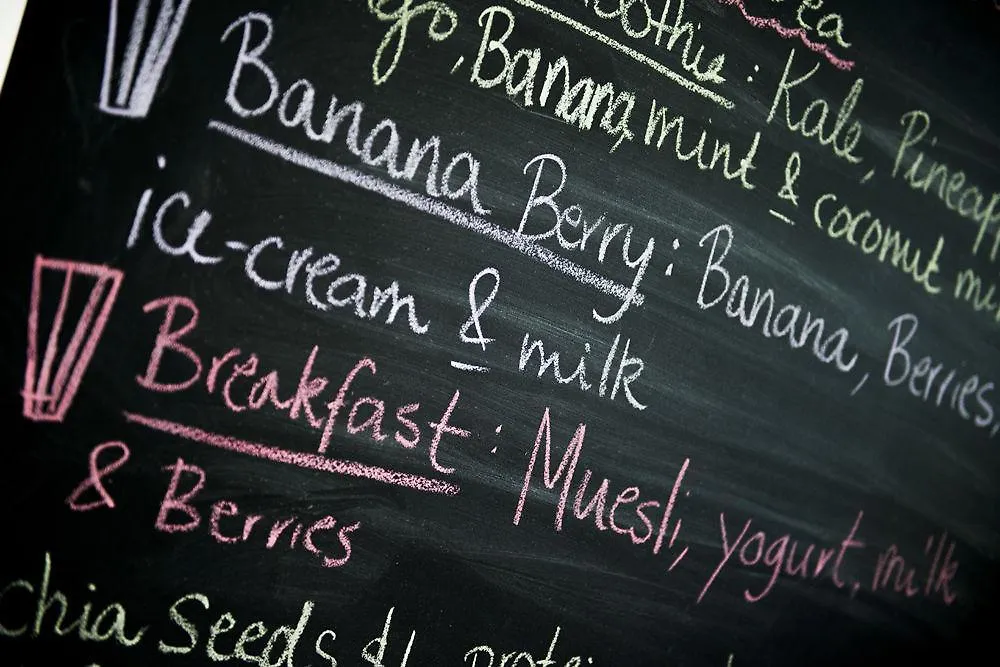 Smoothie: Kale, Pineapp
go, Banana, mint & coconut
Banana Berry: Banana, Berries,
ice-cream & milk
Breakfast: Muesli, yogurt, milk
& Berries
chia Seeds